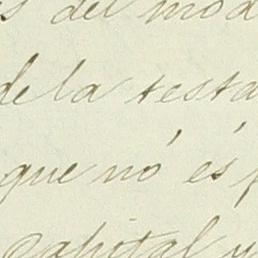 del mod
de la testa
que nó és p
capital y